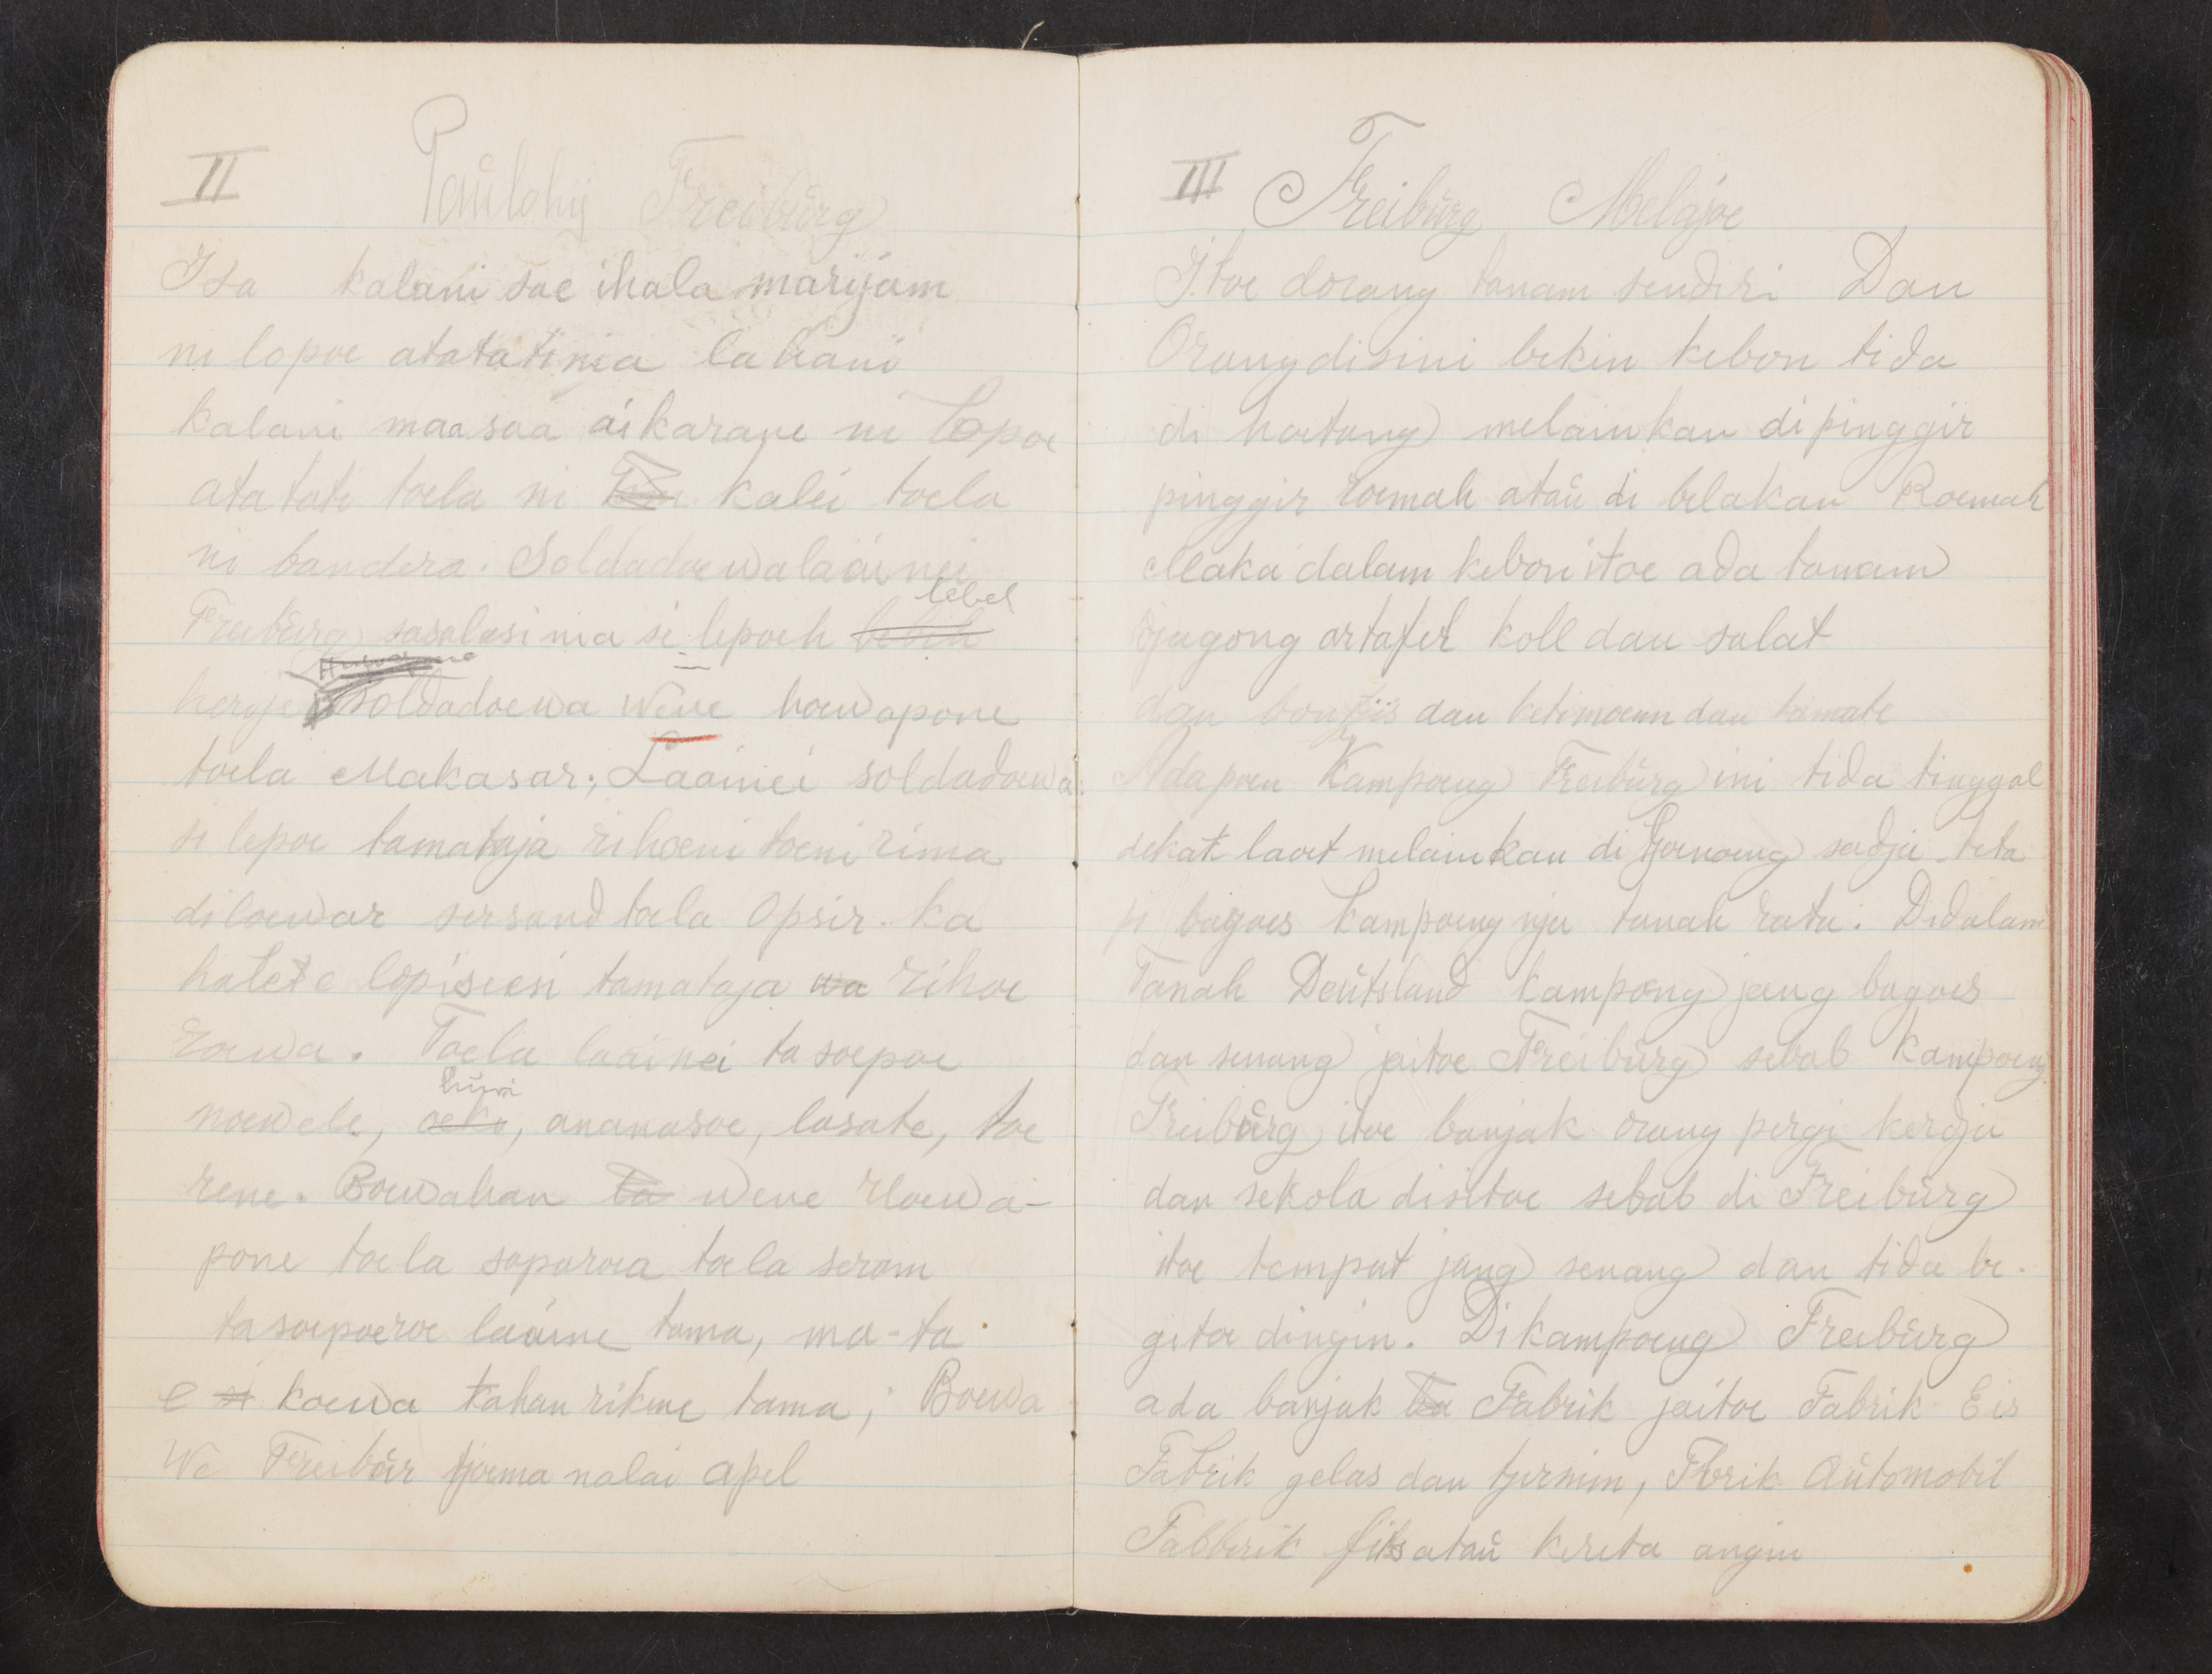 II Paŭlohij Freibŭrg
Isa kalani sae ihala marijam
ni lopoe atatatinia lahani
kalani maasaa aikarane ni lopoe
atatati toela ni kalei toela
ni bandera. Soldadoewa laäinei
lebeh
Freibŭrg sasalasi nia si lepoeh bebih
soldadoewa wene hoewapone
toela Makasar; Laäinei soldadoewa
si lepoe tamataja rihoeni toeni rima
diloewar sersand toela Opsir. ka
halete lopisiesi tamataja wa rihoe
roewa. Toela laäinei ta soepoe
hŭwi
noewele, oeko, ananasoe, lasate, toe
rene. Boewahan ta wene Hoewa-
pone toela saparoea toela seram
ta soepoeroe laäine tama, ma-ta
e si koewa tahan rikene tama, Boewa
We Freiboŭr tjoema nalai apel
III Freibŭrg Melajoe
Itoe dorang tanam sendiri Dan
Orang disini bekin kebon tida
di hoetang melainkan di pinggir
pinggir roemah ataŭ di belakan Roemah
Maka dalam kebon itoe ada tanam
djagong artafel koll dan salat
dan dan ketimoenn dan tamate
Adapoen Kampoeng Freibŭrg ini tida tinggal
dekat laoet melainkan di goenoeng sadja teta
pi bagoes kampoeng nja tanah rata. Didalam
Tanah Deŭtsland kampong jang bagoes
dan senang jaitoe Freibŭrg sebab kampoeng
Freibŭrg itoe banjak orang pergi kerdja
dan sekola disitoe sebab di Freibŭrg
itoe tempat jang senang dan tida be-
gitoe dingin. Dikampoeng Freibŭrg
ada banjak ba Fabrik jaitoe Fabrik Eis
Fabrik gelas dan tjermin, Fbrik Aŭtomobil
Fabberik fits ataŭ kereta angin